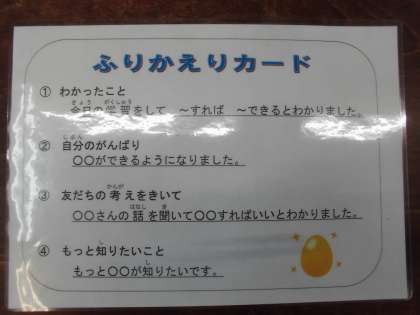 ふりかえりカード
① わかったこと
今日の学習をして、～すれば ～できるとわかりました。
② 自分のがんばり
〇〇ができるようになりました。
③ 友だちの考えをきいて
〇〇さんの話を聞いて〇〇すればいいとわかりました。
④ もっと知りたいこと
もっと〇〇が知りたいです。